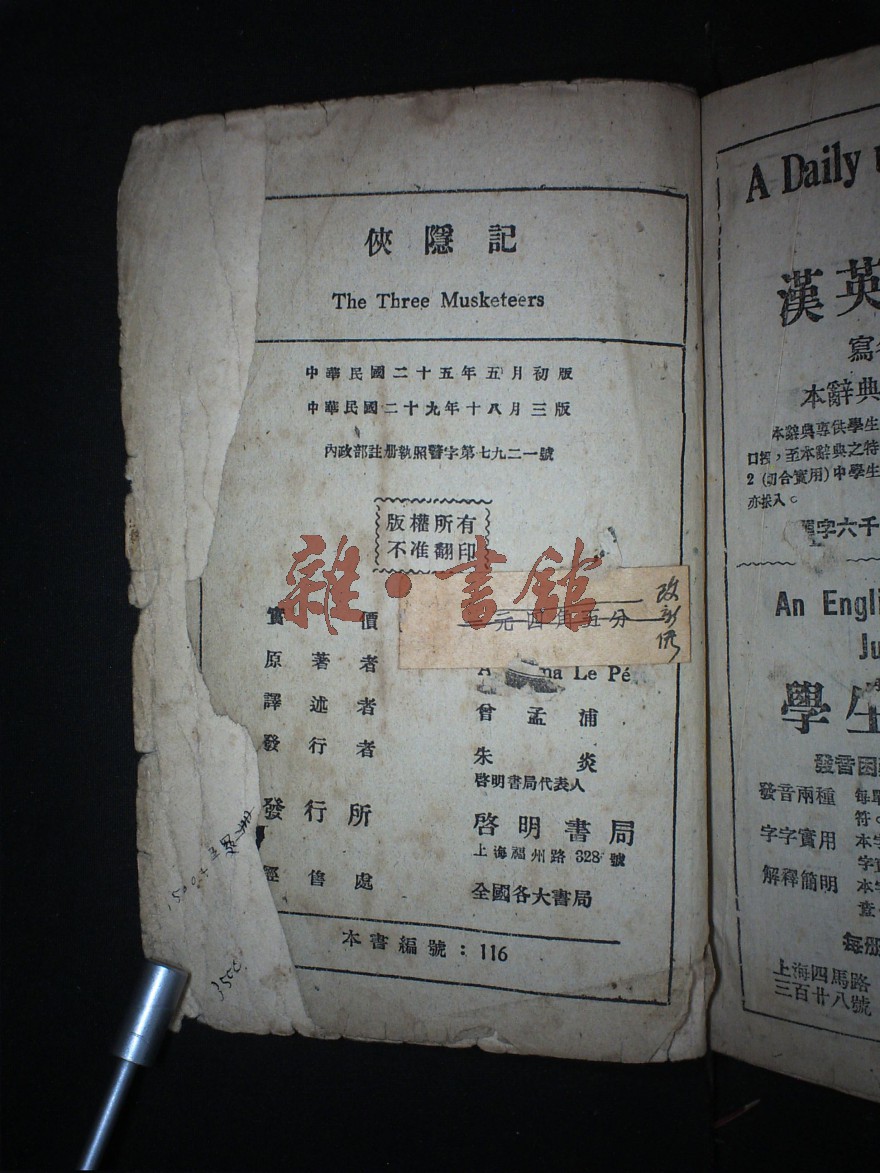 俠隱記
The Three Musketeers
中華民國二十五年五月初版
中華民國二十九年十八月三版
內政部註册執照警字第七九二一號
版權所有
不准翻印
雜·書館
實價 元四角五分
改新價
原著者 Le Pé
譯述者 曾孟浦
發行者 朱炎
啓明書局代表人
發行所 啓明書局
上海福州路328號
經售處 全國各大書局
本書編號:116
3500
A Daily
漢英
本辭典
本辭典專供學生
口袋,至本辭典之特
2(切合實用)中學生
亦採入。
字六千
An Engli
Ju
學生
發音困
發音兩種 每單
符。
字字實用 本字
字實
解釋簡明 本字
查
每册
上海四馬路
三百廿八號